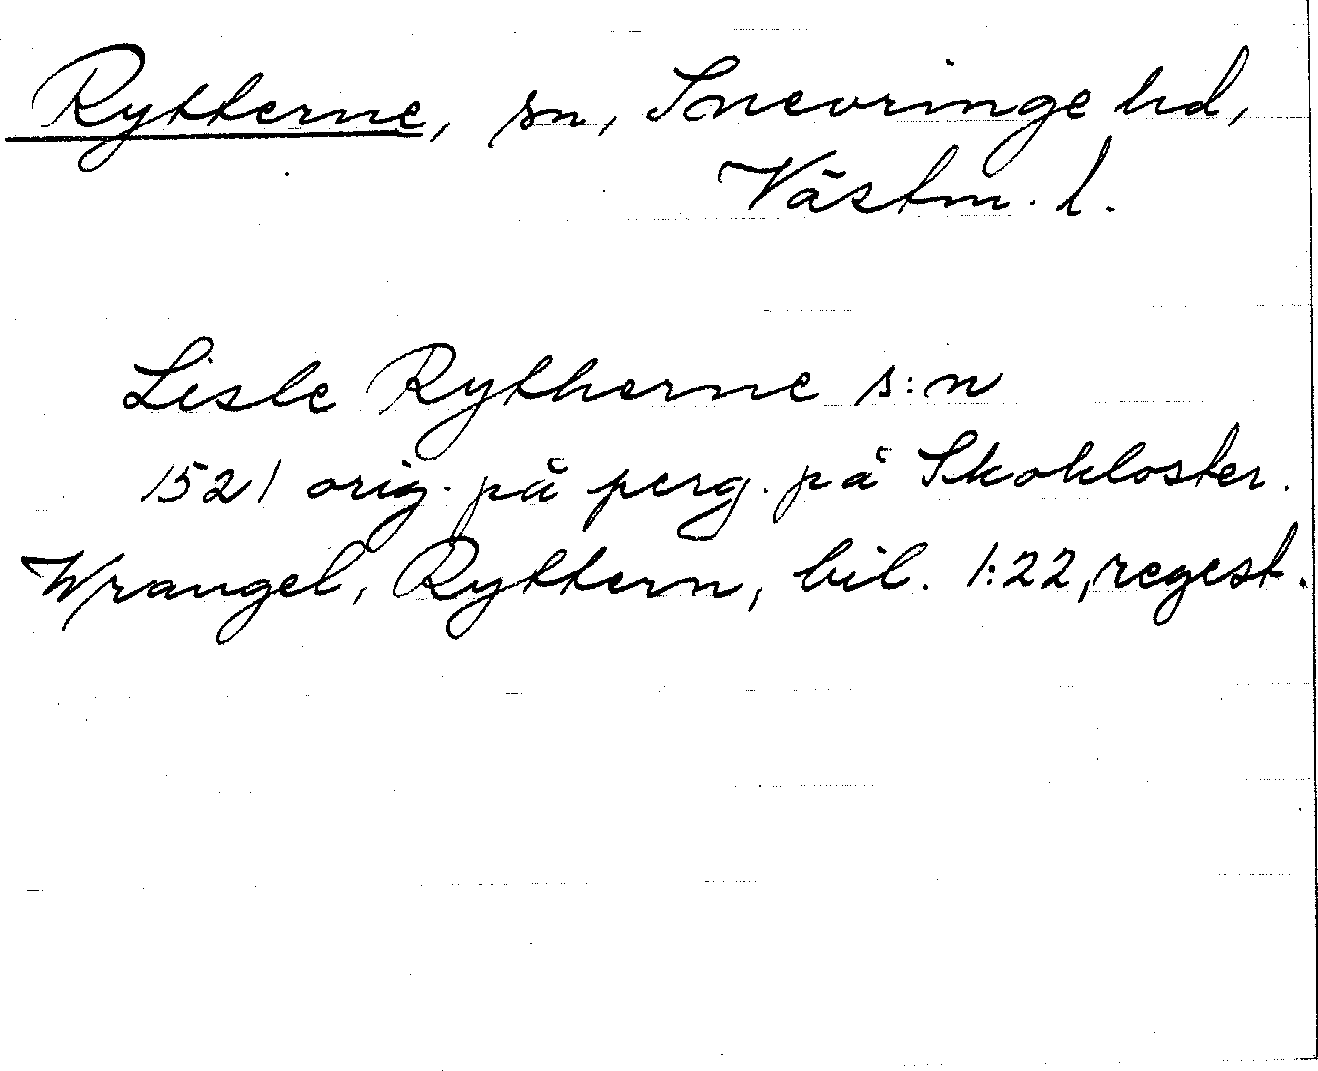 Rytterne, sn, Snevringe hd,
Västm. l.
Lisle Rytherne s:n
1521 orig. på perg. på Skokloster.
Wrangel, Ryttern, bil. 1:22, regest.